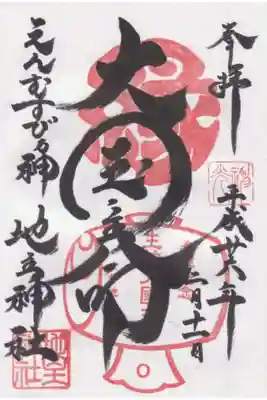 奉拝
平成廿八年
三月十一日
大国主命
えんむすびの神
地主神社